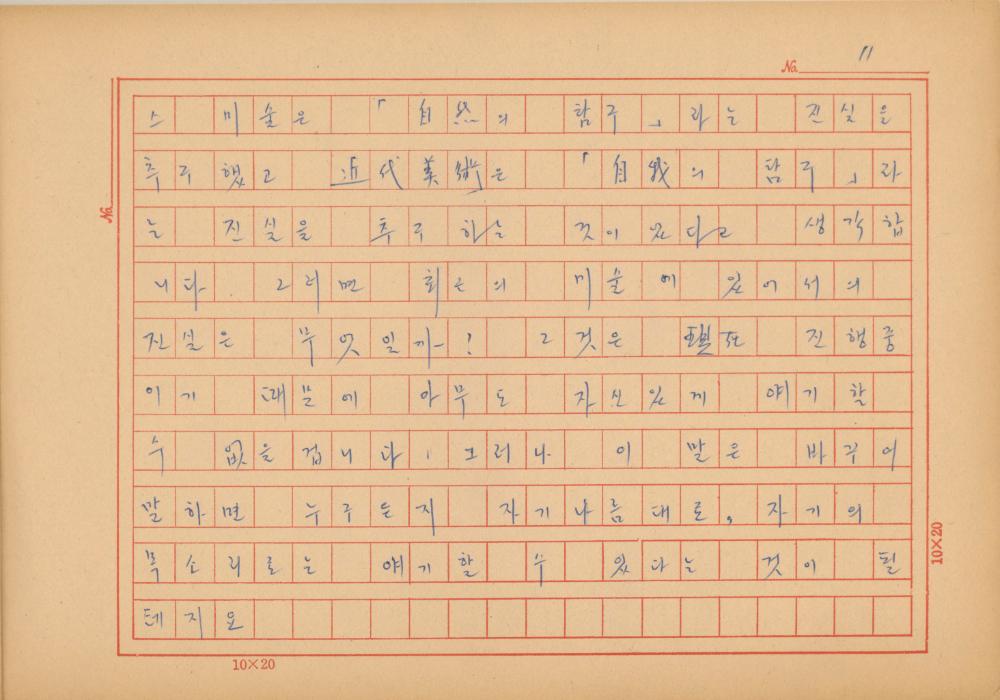 No. 11
스 미술은 「自然의 탐구」라는 진실을
추구했고 近代美術은 「自我의 탐구」라
는 진실을 추구하는 것이 있다고 생각합
니다. 그러면 최근의 미술에 있어서의
진실은 무엇일까-? 그것은 現在 진행중
이기 때문에 아무도 자신있게 얘기할
수 없을겁니다. 그러나 이 말은 바꾸어
말하면 누구든지 자기나름대로, 자기의
목소리로는 얘기할 수 있다는 것이 될
테지요
No.
10×20
10×20